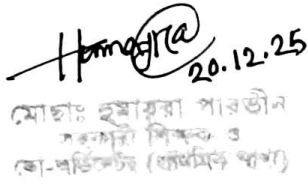 Humayra
20.12.25
মোছাঃ হুমায়রা পারভীন
সহকারী শিক্ষক ও
কো-অর্ডিনেটর (প্রাথমিক শাখা)